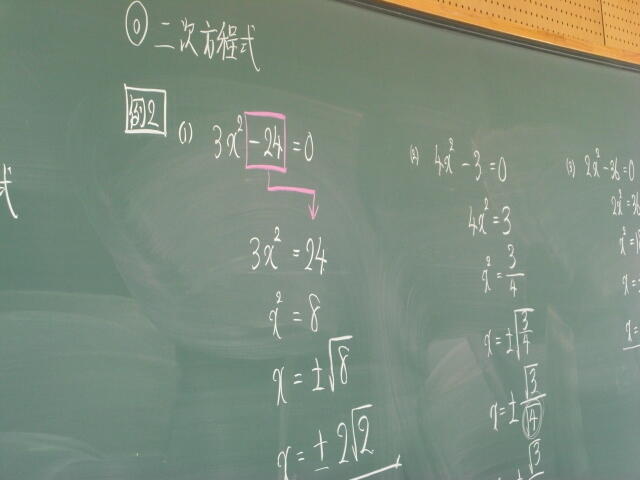 ⓪ 二次方程式
例2
(1) 3x² -24 = 0
3x² = 24
x² = 8
x = ±√8
x = ±2√2
(2) 4x² - 3 = 0
4x² = 3
x² = 3/4
x = ±√(3/4)
x = ±√3/√4
√3
(3) 2x² - 36 = 0
2x² = 36
x² =
x =
x =
式